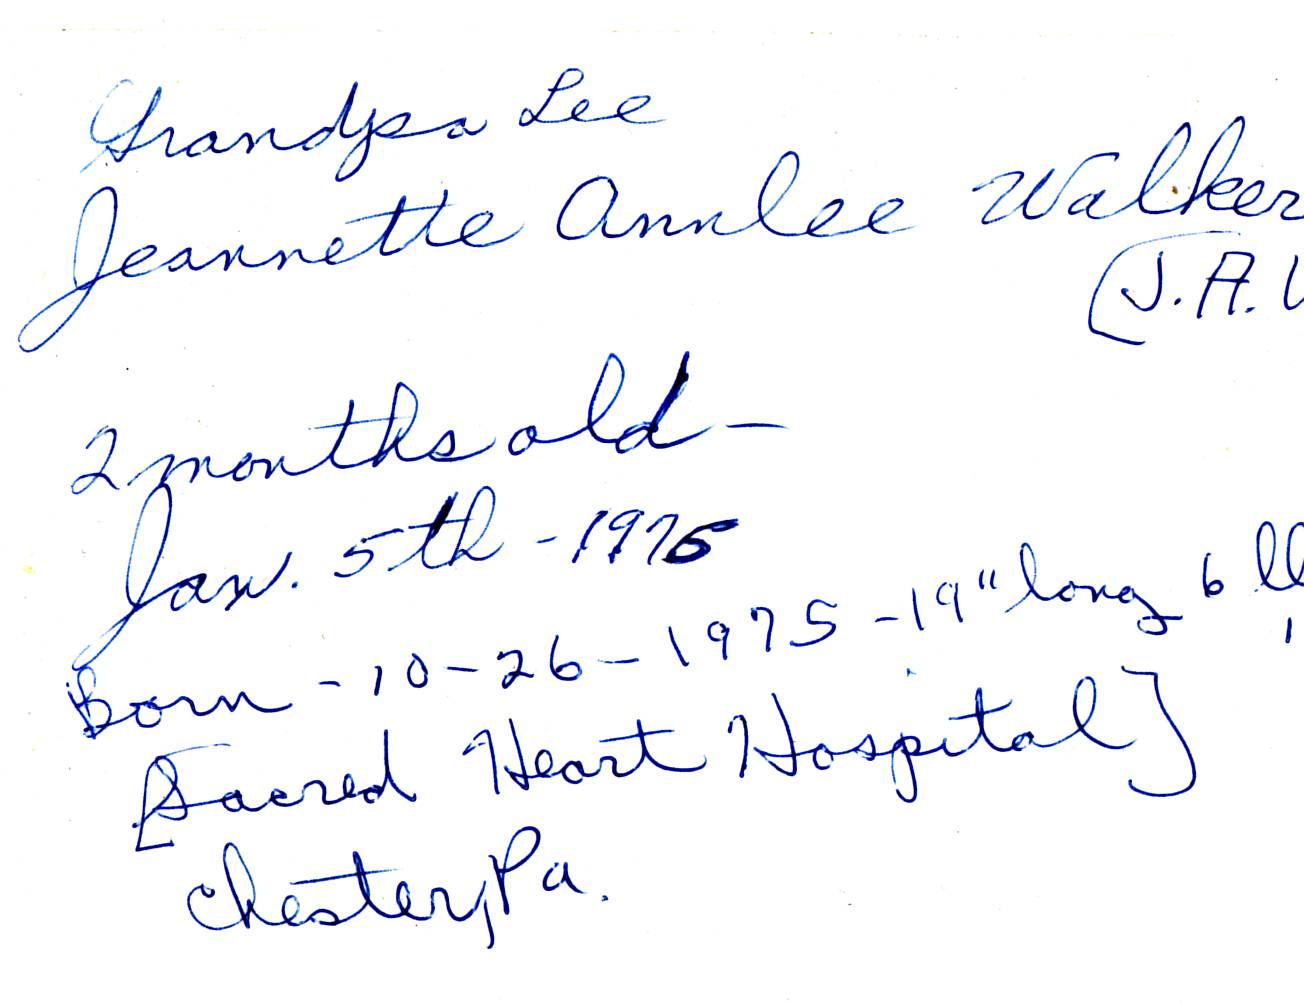 Grandpa Lee
Jeannette Annlee Walker
(J.A.
2 months old –
Jan. 5th - 1976
Born - 10-26-1975 - 19" long 6
[Sacred Heart Hospital]
Chester, Pa.